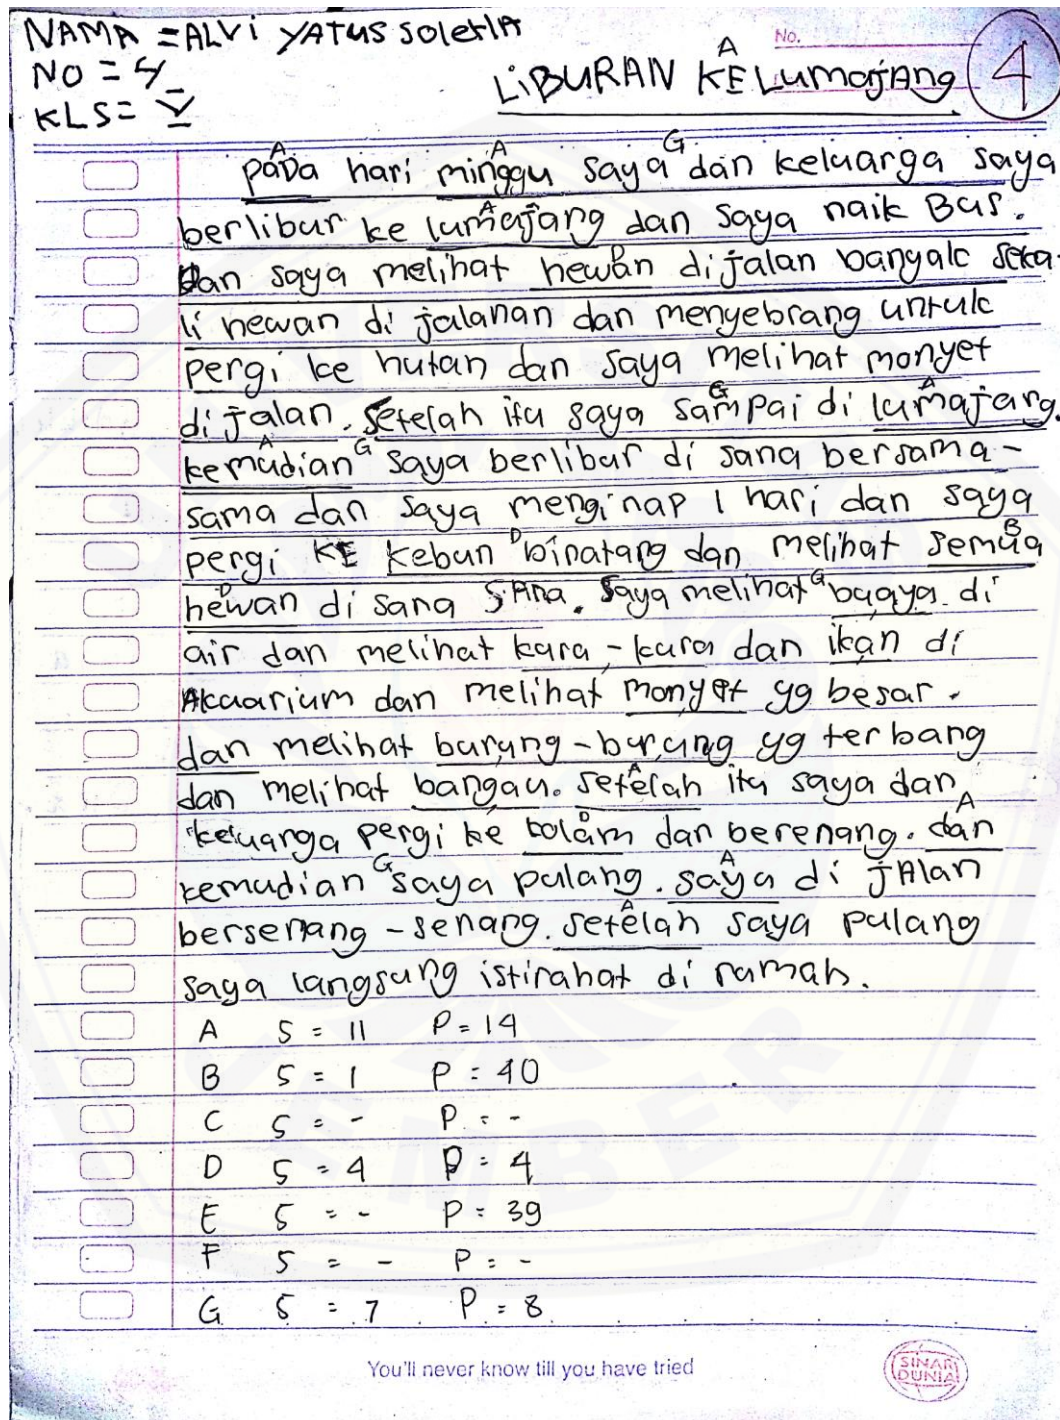 NAMA = ALVi YATUS SolEHA
NO = 4
KLS = V
No.
A
LiBURAN KE LumajAng
4
A A G
paDa hari minggu saya dan keluarga saya
A
berlibur ke lumajang dan saya naik Bus.
D
Dan saya melihat hewan dijalan banyak seka-
li hewan di jalanan dan menyebrang untuk
pergi ke hutan dan saya melihat monyet
G A
di jalan. Setelah itu saya sampai di lumajang.
A G
kemudian saya berlibur di sana bersama-
sama dan saya menginap 1 hari dan saya
D B
pergi KE kebun binatang dan melihat semua
D G
hewan di sana SiAna. Saya melihat buaya di
air dan melihat kura-kura dan ikan di
Akuarium dan melihat monyet yg besar.
dan melihat burung-burung yg terbang
A
dan melihat bangau. setelah itu saya dan
D A
keluarga pergi ke kolam dan berenang. dan
G A
kemudian saya pulang. saya di jAlan
A
bersenang-senang. setelah saya pulang
saya langsung istirahat di rumah.
A S = 11 P = 14
B S = 1 P = 40
C S = - P = -
D S = 4 P = 4
E S = - P = 39
F S = - P = -
G S = 7 P = 8
You'll never know till you have tried
SINAR DUNIA